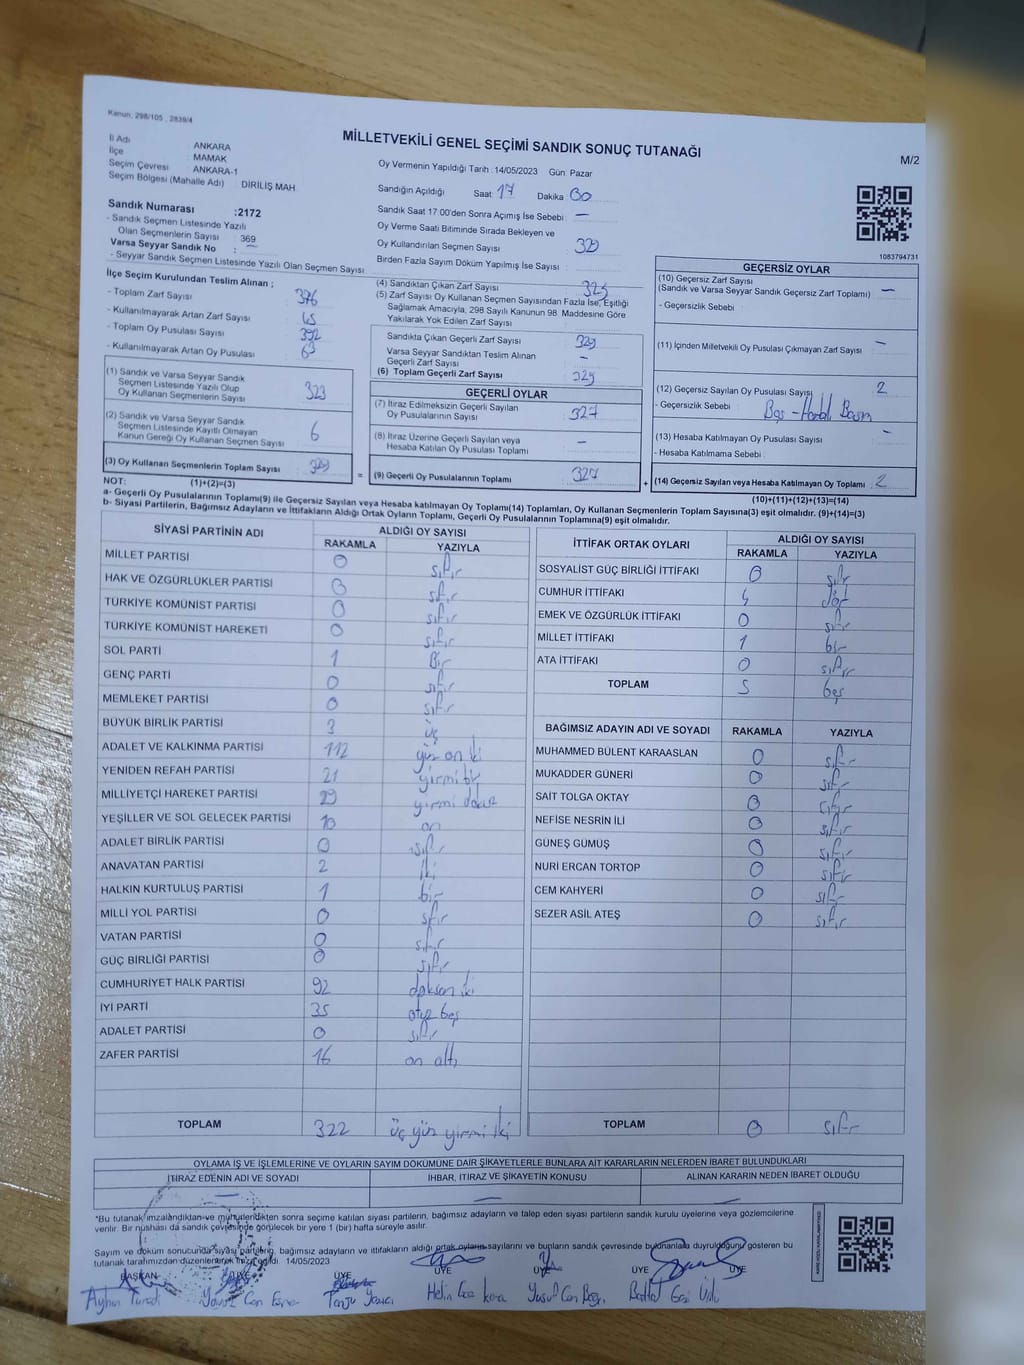 Kanun, 298/105 , 2839/4
MİLLETVEKİLİ GENEL SEÇİMİ SANDIK SONUÇ TUTANAĞI
M/2
İl Adı ANKARA
İlçe MAMAK
Seçim Çevresi ANKARA-1
Seçim Bölgesi (Mahalle Adı) : DİRİLİŞ MAH.
Oy Vermenin Yapıldığı Tarih :14/05/2023 Gün: Pazar
Sandığın Açıldığı Saat : 17 Dakika : 00
Sandık Saat 17:00'den Sonra Açımış İse Sebebi : —
Oy Verme Saati Bitiminde Sırada Bekleyen ve
Oy Kullandırılan Seçmen Sayısı : 329
Birden Fazla Sayım Döküm Yapılmış İse Sayısı :
Sandık Numarası :2172
- Sandık Seçmen Listesinde Yazılı
Olan Seçmenlerin Sayısı : 369
Varsa Seyyar Sandık No : —
- Seyyar Sandık Seçmen Listesinde Yazılı Olan Seçmen Sayısı :
1083794731
İlçe Seçim Kurulundan Teslim Alınan ;
- Toplam Zarf Sayısı : 376
- Kullanılmayarak Artan Zarf Sayısı :
- Toplam Oy Pusulası Sayısı : 392
- Kullanılmayarak Artan Oy Pusulası : 63
(1) Sandık ve Varsa Seyyar Sandık
Seçmen Listesinde Yazılı Olup
Oy Kullanan Seçmenlerin Sayısı : 323
(2) Sandık ve Varsa Seyyar Sandık
Seçmen Listesinde Kayıtlı Olmayan
Kanun Gereği Oy Kullanan Seçmen Sayısı : 6
(3) Oy Kullanan Seçmenlerin Toplam Sayısı : 329
(4) Sandıktan Çıkan Zarf Sayısı : 329
(5) Zarf Sayısı Oy Kullanan Seçmen Sayısından Fazla İse, Eşitliği
Sağlamak Amacıyla, 298 Sayılı Kanunun 98. Maddesine Göre
Yakılarak Yok Edilen Zarf Sayısı :
Sandıkta Çıkan Geçerli Zarf Sayısı : 329
Varsa Seyyar Sandıktan Teslim Alınan
Geçerli Zarf Sayısı : —
(6) Toplam Geçerli Zarf Sayısı : 329
GEÇERLİ OYLAR
(7) İtiraz Edilmeksizin Geçerli Sayılan
Oy Pusulalarının Sayısı : 327
(8) İtiraz Üzerine Geçerli Sayılan veya
Hesaba Katılan Oy Pusulası Toplamı : —
= (9) Geçerli Oy Pusulalarının Toplamı : 327
GEÇERSİZ OYLAR
(10) Geçersiz Zarf Sayısı
(Sandık ve Varsa Seyyar Sandık Geçersiz Zarf Toplamı) : —
- Geçersizlik Sebebi :
(11) İçinden Milletvekili Oy Pusulası Çıkmayan Zarf Sayısı : —
(12) Geçersiz Sayılan Oy Pusulası Sayısı : 2
- Geçersizlik Sebebi : Boş -
(13) Hesaba Katılmayan Oy Pusulası Sayısı : —
- Hesaba Katılmama Sebebi :
+ (14) Geçersiz Sayılan veya Hesaba Katılmayan Oy Toplamı : 2
NOT: (1)+(2)=(3)
(10)+(11)+(12)+(13)=(14)
a- Geçerli Oy Pusulalarının Toplamı(9) ile Geçersiz Sayılan veya Hesaba katılmayan Oy Toplamı(14) Toplamları, Oy Kullanan Seçmenlerin Toplam Sayısına(3) eşit olmalıdır. (9)+(14)=(3)
b- Siyasi Partilerin, Bağımsız Adayların ve İttifakların Aldığı Ortak Oyların Toplamı, Geçerli Oy Pusulalarının Toplamına(9) eşit olmalıdır.
SİYASİ PARTİNİN ADI ALDIĞI OY SAYISI
RAKAMLA YAZIYLA
MİLLET PARTİSİ 0 sıfır
HAK VE ÖZGÜRLÜKLER PARTİSİ 0 sıfır
TÜRKİYE KOMÜNİST PARTİSİ 0 sıfır
TÜRKİYE KOMÜNİST HAREKETİ 0 sıfır
SOL PARTİ 1 Bir
GENÇ PARTİ 0 sıfır
MEMLEKET PARTİSİ 0 sıfır
BÜYÜK BİRLİK PARTİSİ 3 üç
ADALET VE KALKINMA PARTİSİ 112 yüz on iki
YENİDEN REFAH PARTİSİ 21 yirmi bir
MİLLİYETÇİ HAREKET PARTİSİ 29 yirmi dokuz
YEŞİLLER VE SOL GELECEK PARTİSİ 10 on
ADALET BİRLİK PARTİSİ 0 sıfır
ANAVATAN PARTİSİ 2 iki
HALKIN KURTULUŞ PARTİSİ 1 bir
MİLLİ YOL PARTİSİ 0 sıfır
VATAN PARTİSİ 0 sıfır
GÜÇ BİRLİĞİ PARTİSİ 0 sıfır
CUMHURİYET HALK PARTİSİ 92 doksan iki
İYİ PARTİ 35 otuz beş
ADALET PARTİSİ 0 sıfır
ZAFER PARTİSİ 16 on altı
TOPLAM 322 üç yüz yirmi iki
İTTİFAK ORTAK OYLARI ALDIĞI OY SAYISI
RAKAMLA YAZIYLA
SOSYALİST GÜÇ BİRLİĞİ İTTİFAKI 0 sıfır
CUMHUR İTTİFAKI 4 dört
EMEK VE ÖZGÜRLÜK İTTİFAKI 0 sıfır
MİLLET İTTİFAKI 1 bir
ATA İTTİFAKI 0 sıfır
TOPLAM 5 beş
BAĞIMSIZ ADAYIN ADI VE SOYADI RAKAMLA YAZIYLA
MUHAMMED BÜLENT KARAASLAN 0 sıfır
MUKADDER GÜNERİ 0 sıfır
SAİT TOLGA OKTAY 0 sıfır
NEFİSE NESRİN İLİ 0 sıfır
GÜNEŞ GÜMÜŞ 0 sıfır
NURİ ERCAN TORTOP 0 sıfır
CEM KAHYERİ 0 sıfır
SEZER ASİL ATEŞ 0 sıfır
TOPLAM 0 sıfır
OYLAMA İŞ VE İŞLEMLERİNE VE OYLARIN SAYIM DÖKÜMÜNE DAİR ŞİKAYETLERLE BUNLARA AİT KARARLARIN NELERDEN İBARET BULUNDUKLARI
İTİRAZ EDENİN ADI VE SOYADI İHBAR, İTİRAZ VE ŞİKAYETİN KONUSU ALINAN KARARIN NEDEN İBARET OLDUĞU
— — —
*Bu tutanak imzalandıktan ve mühürlendikten sonra seçime katılan siyasi partilerin, bağımsız adayların ve talep eden siyasi partilerin sandık kurulu üyelerine veya gözlemcilerine
verilir. Bir nüshası da sandık çevresinde görülecek bir yere 1 (bir) hafta süreyle asılır.
Sayım ve döküm sonucunda siyasi partilerin, bağımsız adayların ve ittifakların aldığı ortak oyların sayılarını ve bunların sandık çevresinde bulunanlara duyrulduğunu gösteren bu
tutanak tarafımızdan düzenlenerek imza edildi. 14/05/2023
BAŞKAN ÜYE ÜYE ÜYE ÜYE ÜYE